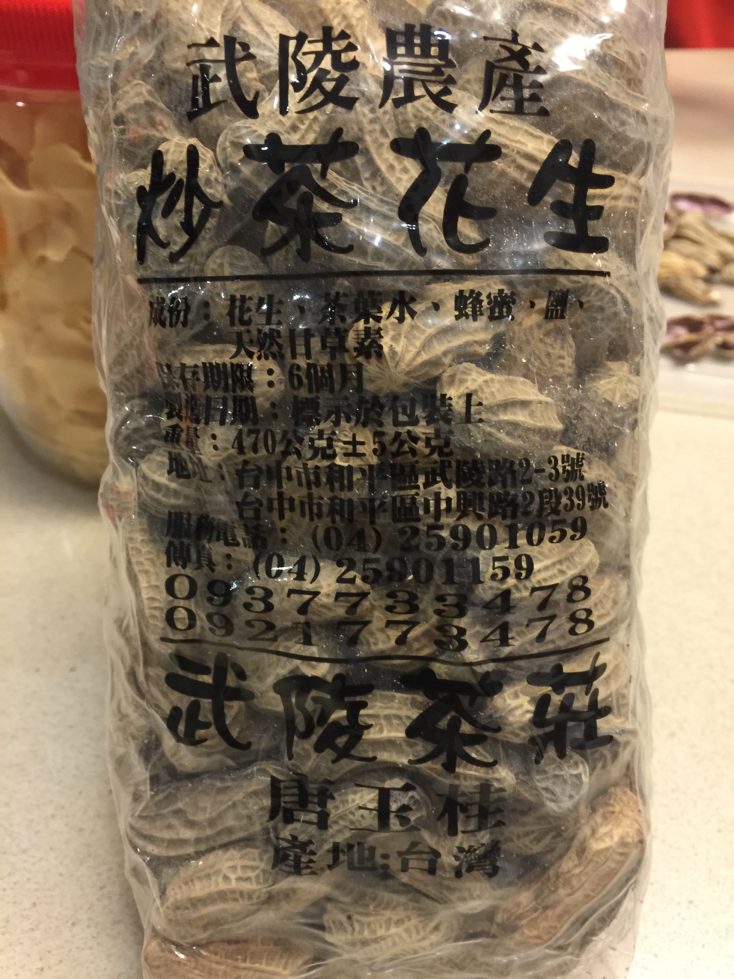 武陵農產
炒茶花生
成份：花生、茶葉水、蜂蜜、鹽、
天然甘草素
保存期限：6個月
製造日期：標示於包裝上
重量：470公克±5公克
地址：台中市和平區武陵路2-3號
台中市和平區中興路2段39號
服務電話：(04) 25901059
傳真：(04) 25901159
0937733478
0921773478
武陵茶莊
唐玉桂
產地:台灣